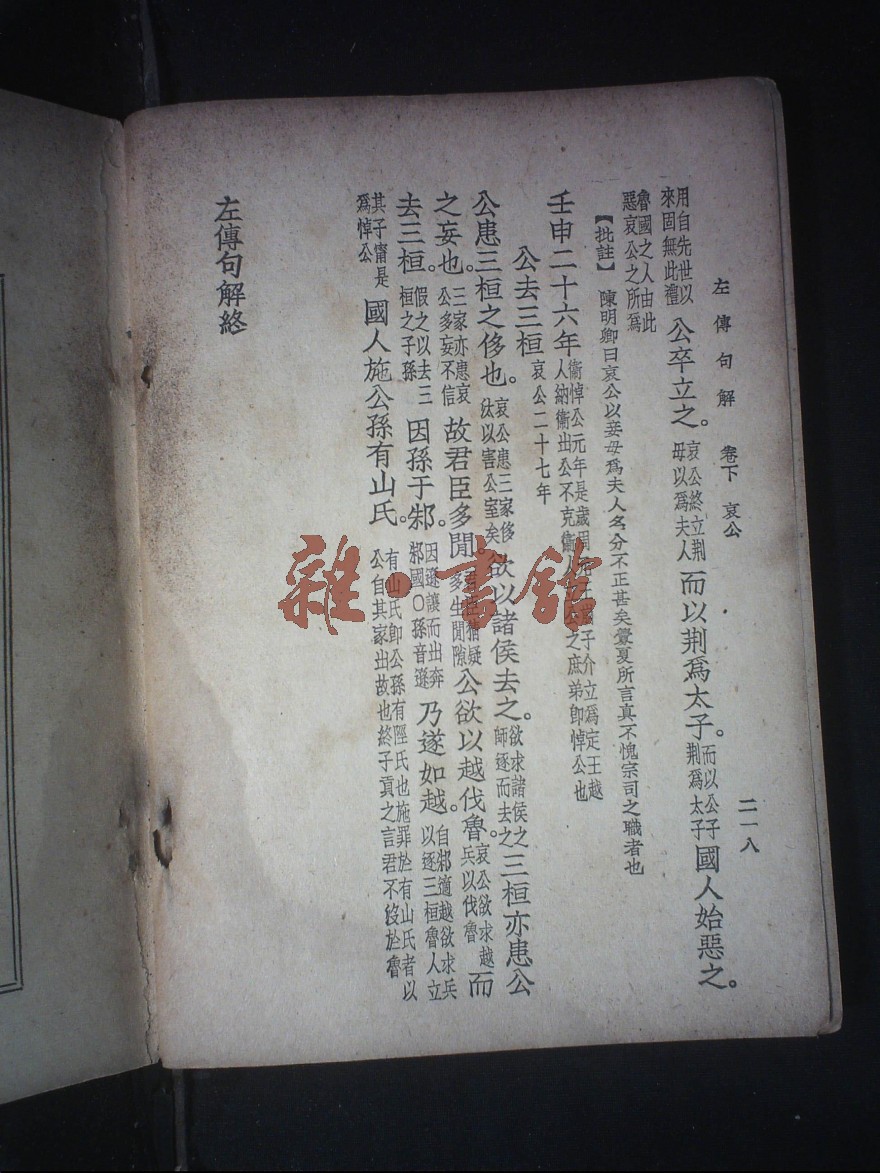 左傳句解 卷下 哀公 二一八
用自先世以來固無此禮 公卒立之。哀公終立荆母以爲夫人 而以荆爲太子。而以公子荆爲太子 國人始惡之。
魯國之人由此惡哀公之所爲
【批註】陳明卿曰哀公以妾母爲夫人名分不正甚矣釁夏所言真不愧宗司之職者也
壬申二十六年 衞悼公元年是歲周元王崩子介立爲定王越人納衞出公不克衞人立之庶弟卽悼公也
公去三桓 哀公二十七年
公患三桓之侈也。哀公患三家侈汰以害公室矣 欲以諸侯去之。欲求諸侯之師逐而去之 三桓亦患公
之妄也。三家亦患哀公多妄不信 故君臣多閒。君臣猜疑多生閒隙 公欲以越伐魯。哀公欲求越兵以伐魯 而
去三桓。假之以去三桓之子孫 因孫于邾。因遜讓而出奔邾國〇孫音遜 乃遂如越。自邾適越欲求兵以逐三桓魯人立
其子甯是爲悼公 國人施公孫有山氏。有山氏卽公孫有陘氏也施罪於有山氏者以公自其家出故也終子貢之言君不歿於魯
左傳句解終
雜·書館